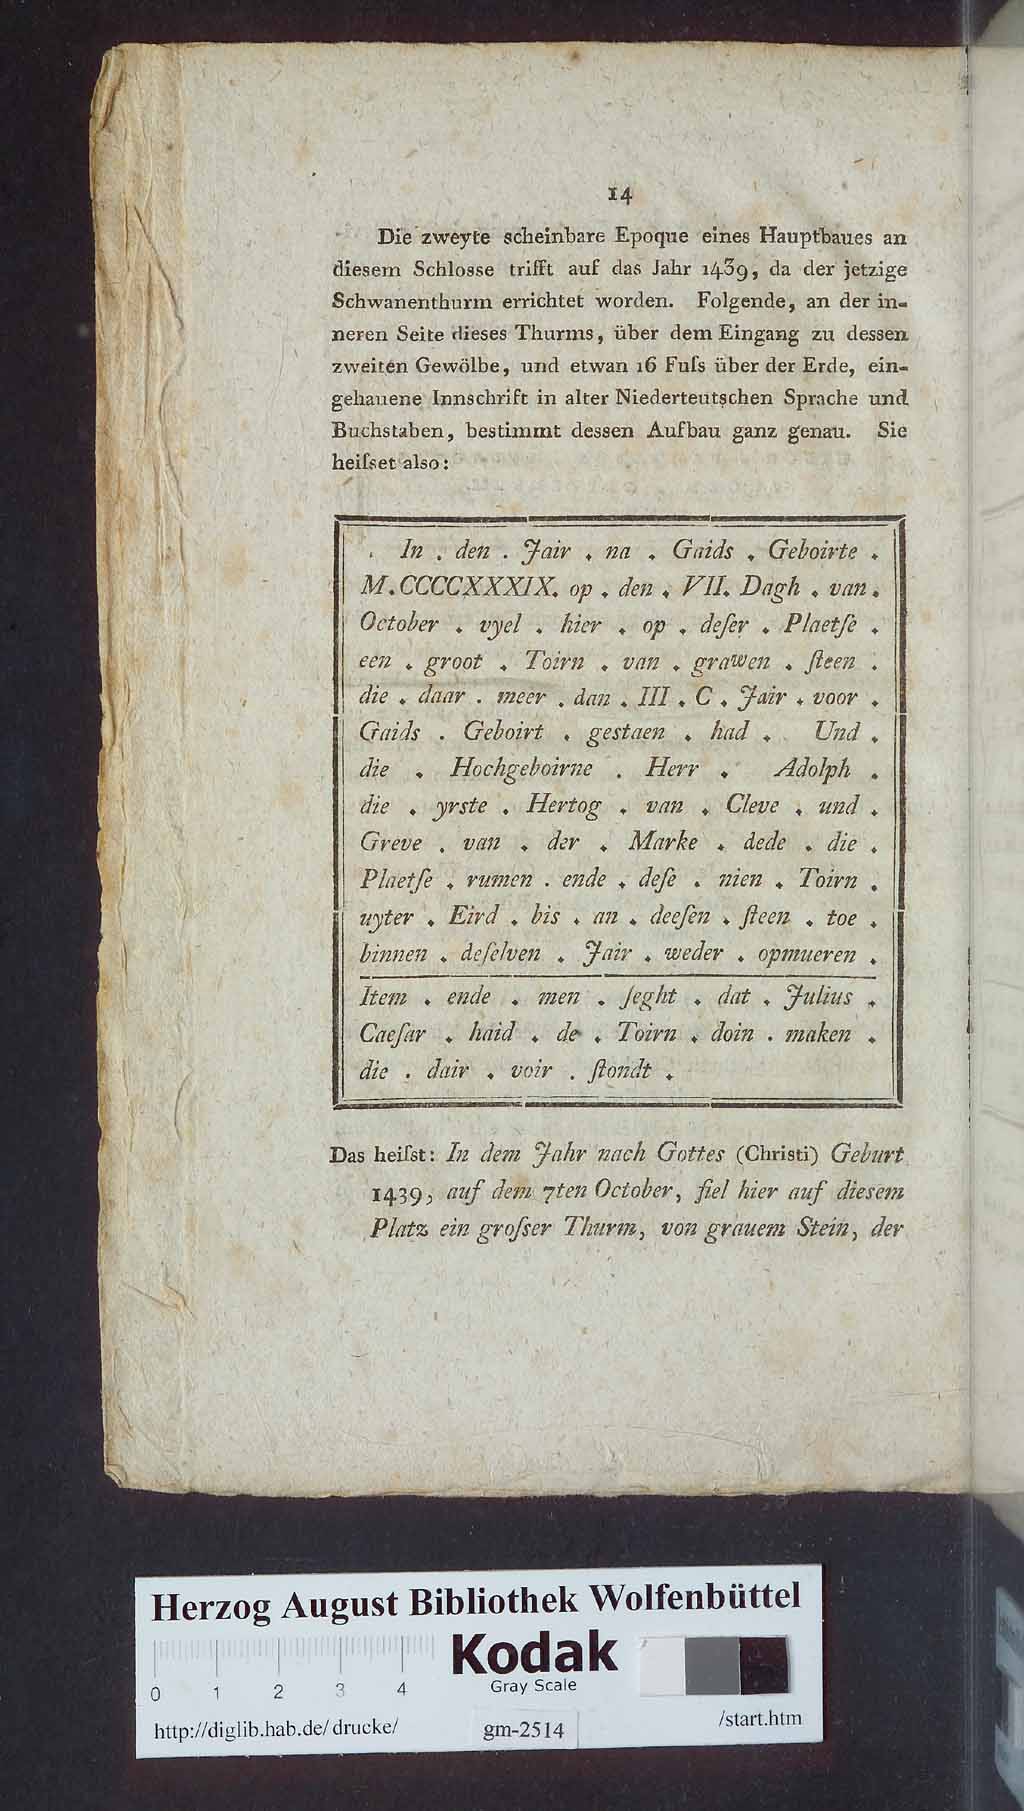 14
Die zweyte scheinbare Epoque eines Hauptbaues an
diesem Schlosse trifft auf das Jahr 1439, da der jetzige
Schwanenthurm errichtet worden. Folgende, an der in-
neren Seite dieses Thurms, über dem Eingang zu dessen
zweiten Gewölbe, und etwan 16 Fuſs über der Erde, ein-
gehauene Innschrift in alter Niederteutschen Sprache und
Buchstaben, bestimmt dessen Aufbau ganz genau. Sie
heiſset also:
. In . den . Jair . na . Gaids . Geboirte .
M.CCCCXXXIX. op . den . VII. Dagh . van .
October . vyel . hier . op . deſer . Plaetſe .
een . groot . Toirn . van . grawen . ſteen .
die . daar . meer . dan . III . C . Jair . voor .
Gaids . Geboirt . gestaen . had . Und .
die . Hochgeboirne . Herr . Adolph .
die . yrste . Hertog . van . Cleve . und .
Greve . van . der . Marke . dede . die .
Plaetſe . rumen . ende . deſe . nien . Toirn .
uyter . Eird . bis . an . deeſen . ſteen . toe .
binnen . deſelven . Jair . weder . opmueren .
Item . ende . men . ſeght . dat . Julius .
Caeſar . haid . de . Toirn . doin . maken .
die . dair . voir . ſtondt .
Das heiſst: In dem Jahr nach Gottes (Christi) Geburt
1439, auf dem 7ten October, fiel hier auf diesem
Platz ein groſser Thurm, von grauem Stein, der
Herzog August Bibliothek Wolfenbüttel
Kodak
Gray Scale
0 1 2 3 4
http://diglib.hab.de/drucke/ gm-2514 /start.htm